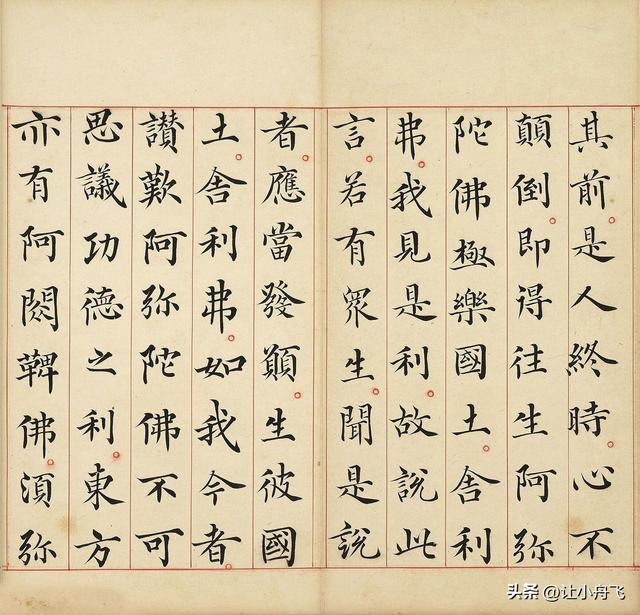 其前是人終時心不
顛倒即得往生阿弥
陀佛極樂國土舎利
弗我見是利故說此
言若有眾生聞是說
者應當發願生彼國
土舎利弗如我今者
讃歎阿弥陀佛不可
思議功德之利東方
亦有阿閦鞞佛須弥
头条 @让小舟飞